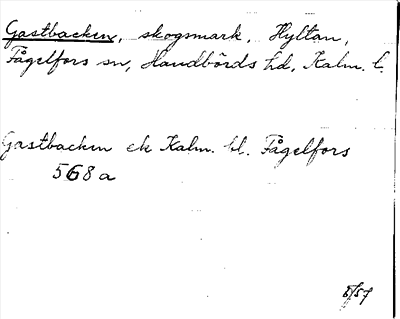 Gastbacken, skogsmark, Hyltan,
Fågelfors sn, Handbörds hd, Kalm. l.
Gastbacken ek Kalm. bl. Fågelfors
568 a
5/57